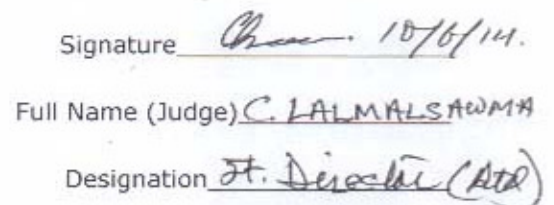 Signature 10/6/14.
Full Name (Judge) C. LALMALSAWMA
Designation Jt. Director (Ato)